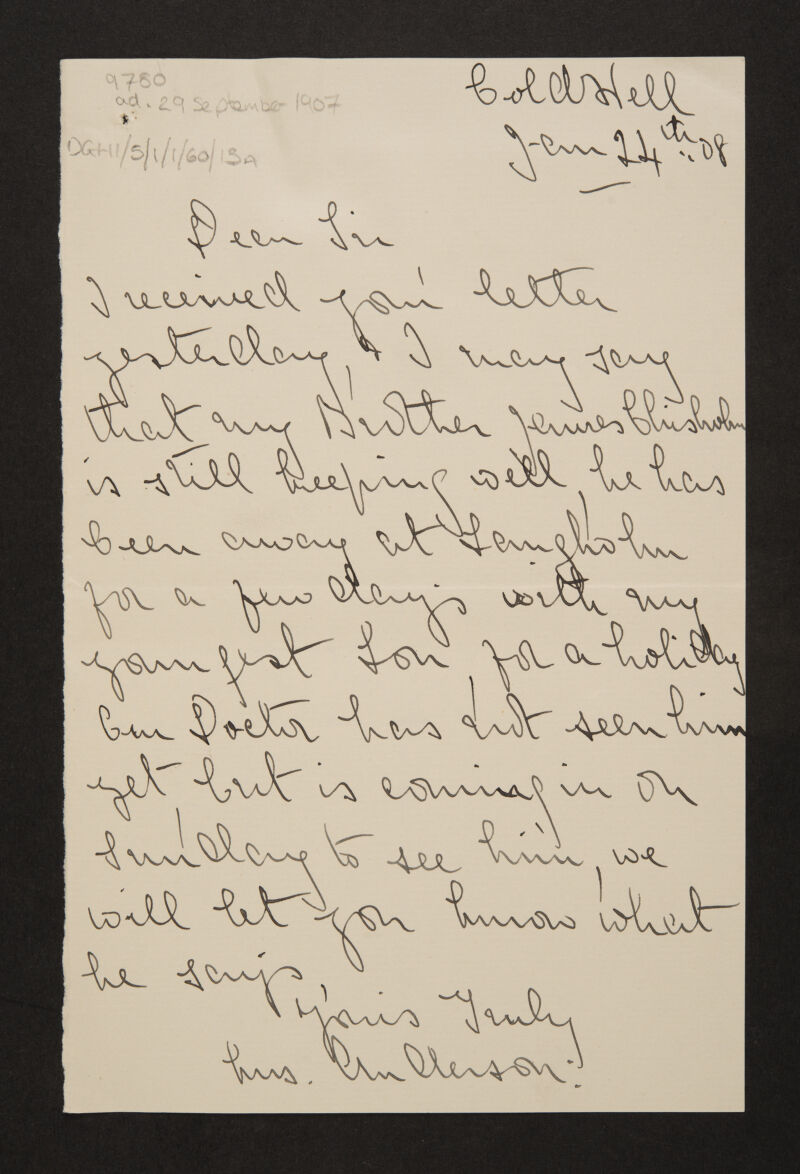 9780
ad. 29 September 1907
DGH1/5/1/1/60/13A
Coldwell
Jan 24th 08
Dear Sir
I received your letter
yesterday, & I may say
that my Brother James Chisholm
is still keeping well, he has
been away at Langholm
for a few days with my
youngest Son, for a holiday
Our Doctor has not seen him
yet, but is coming in on
Sunday to see him, we
will let you know what
he says
Yours Truly
Mrs. Anderson.